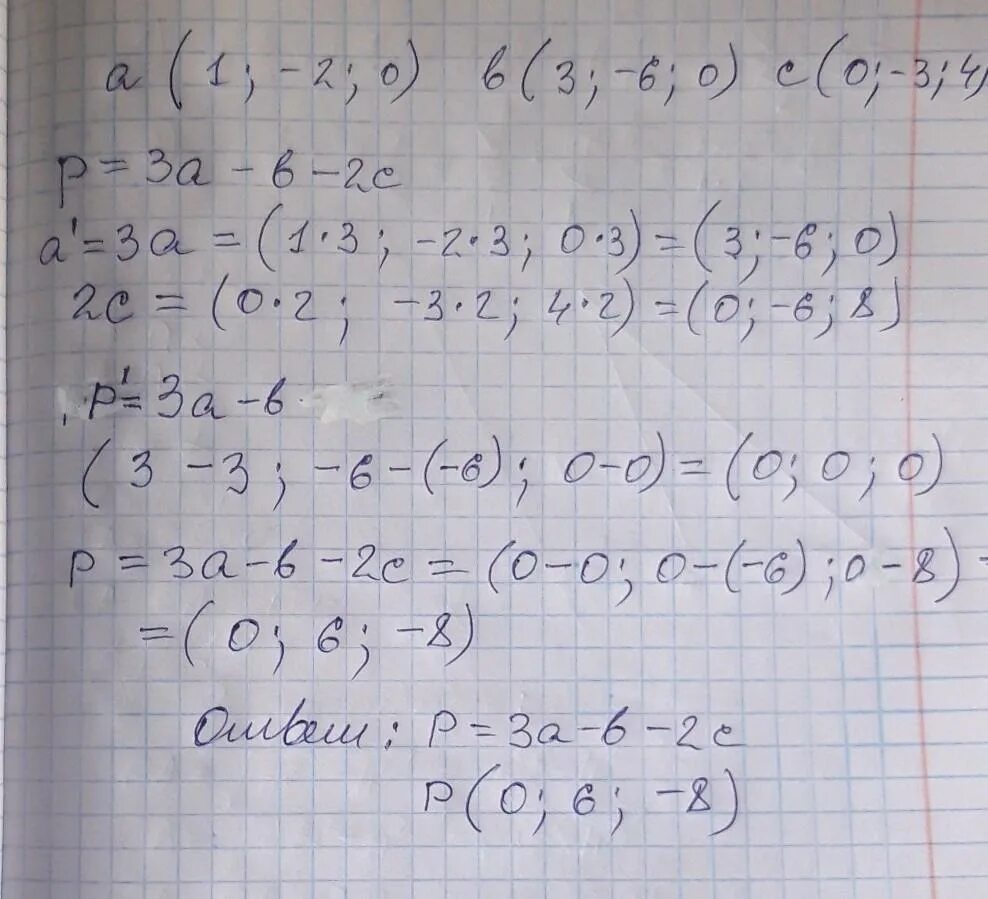 a (1; -2; 0) в (3; -6; 0) c (0; -3; 4)
p = 3a - в - 2c
a' = 3a = (1·3; -2·3; 0·3) = (3; -6; 0)
2c = (0·2; -3·2; 4·2) = (0; -6; 8)
p' = 3a - в
(3 - 3; -6 - (-6); 0 - 0) = (0; 0; 0)
p = 3a - в - 2c = (0 - 0; 0 - (-6); 0 - 8) =
= (0; 6; -8)
Ответ: p = 3a - в - 2c
p (0; 6; -8)